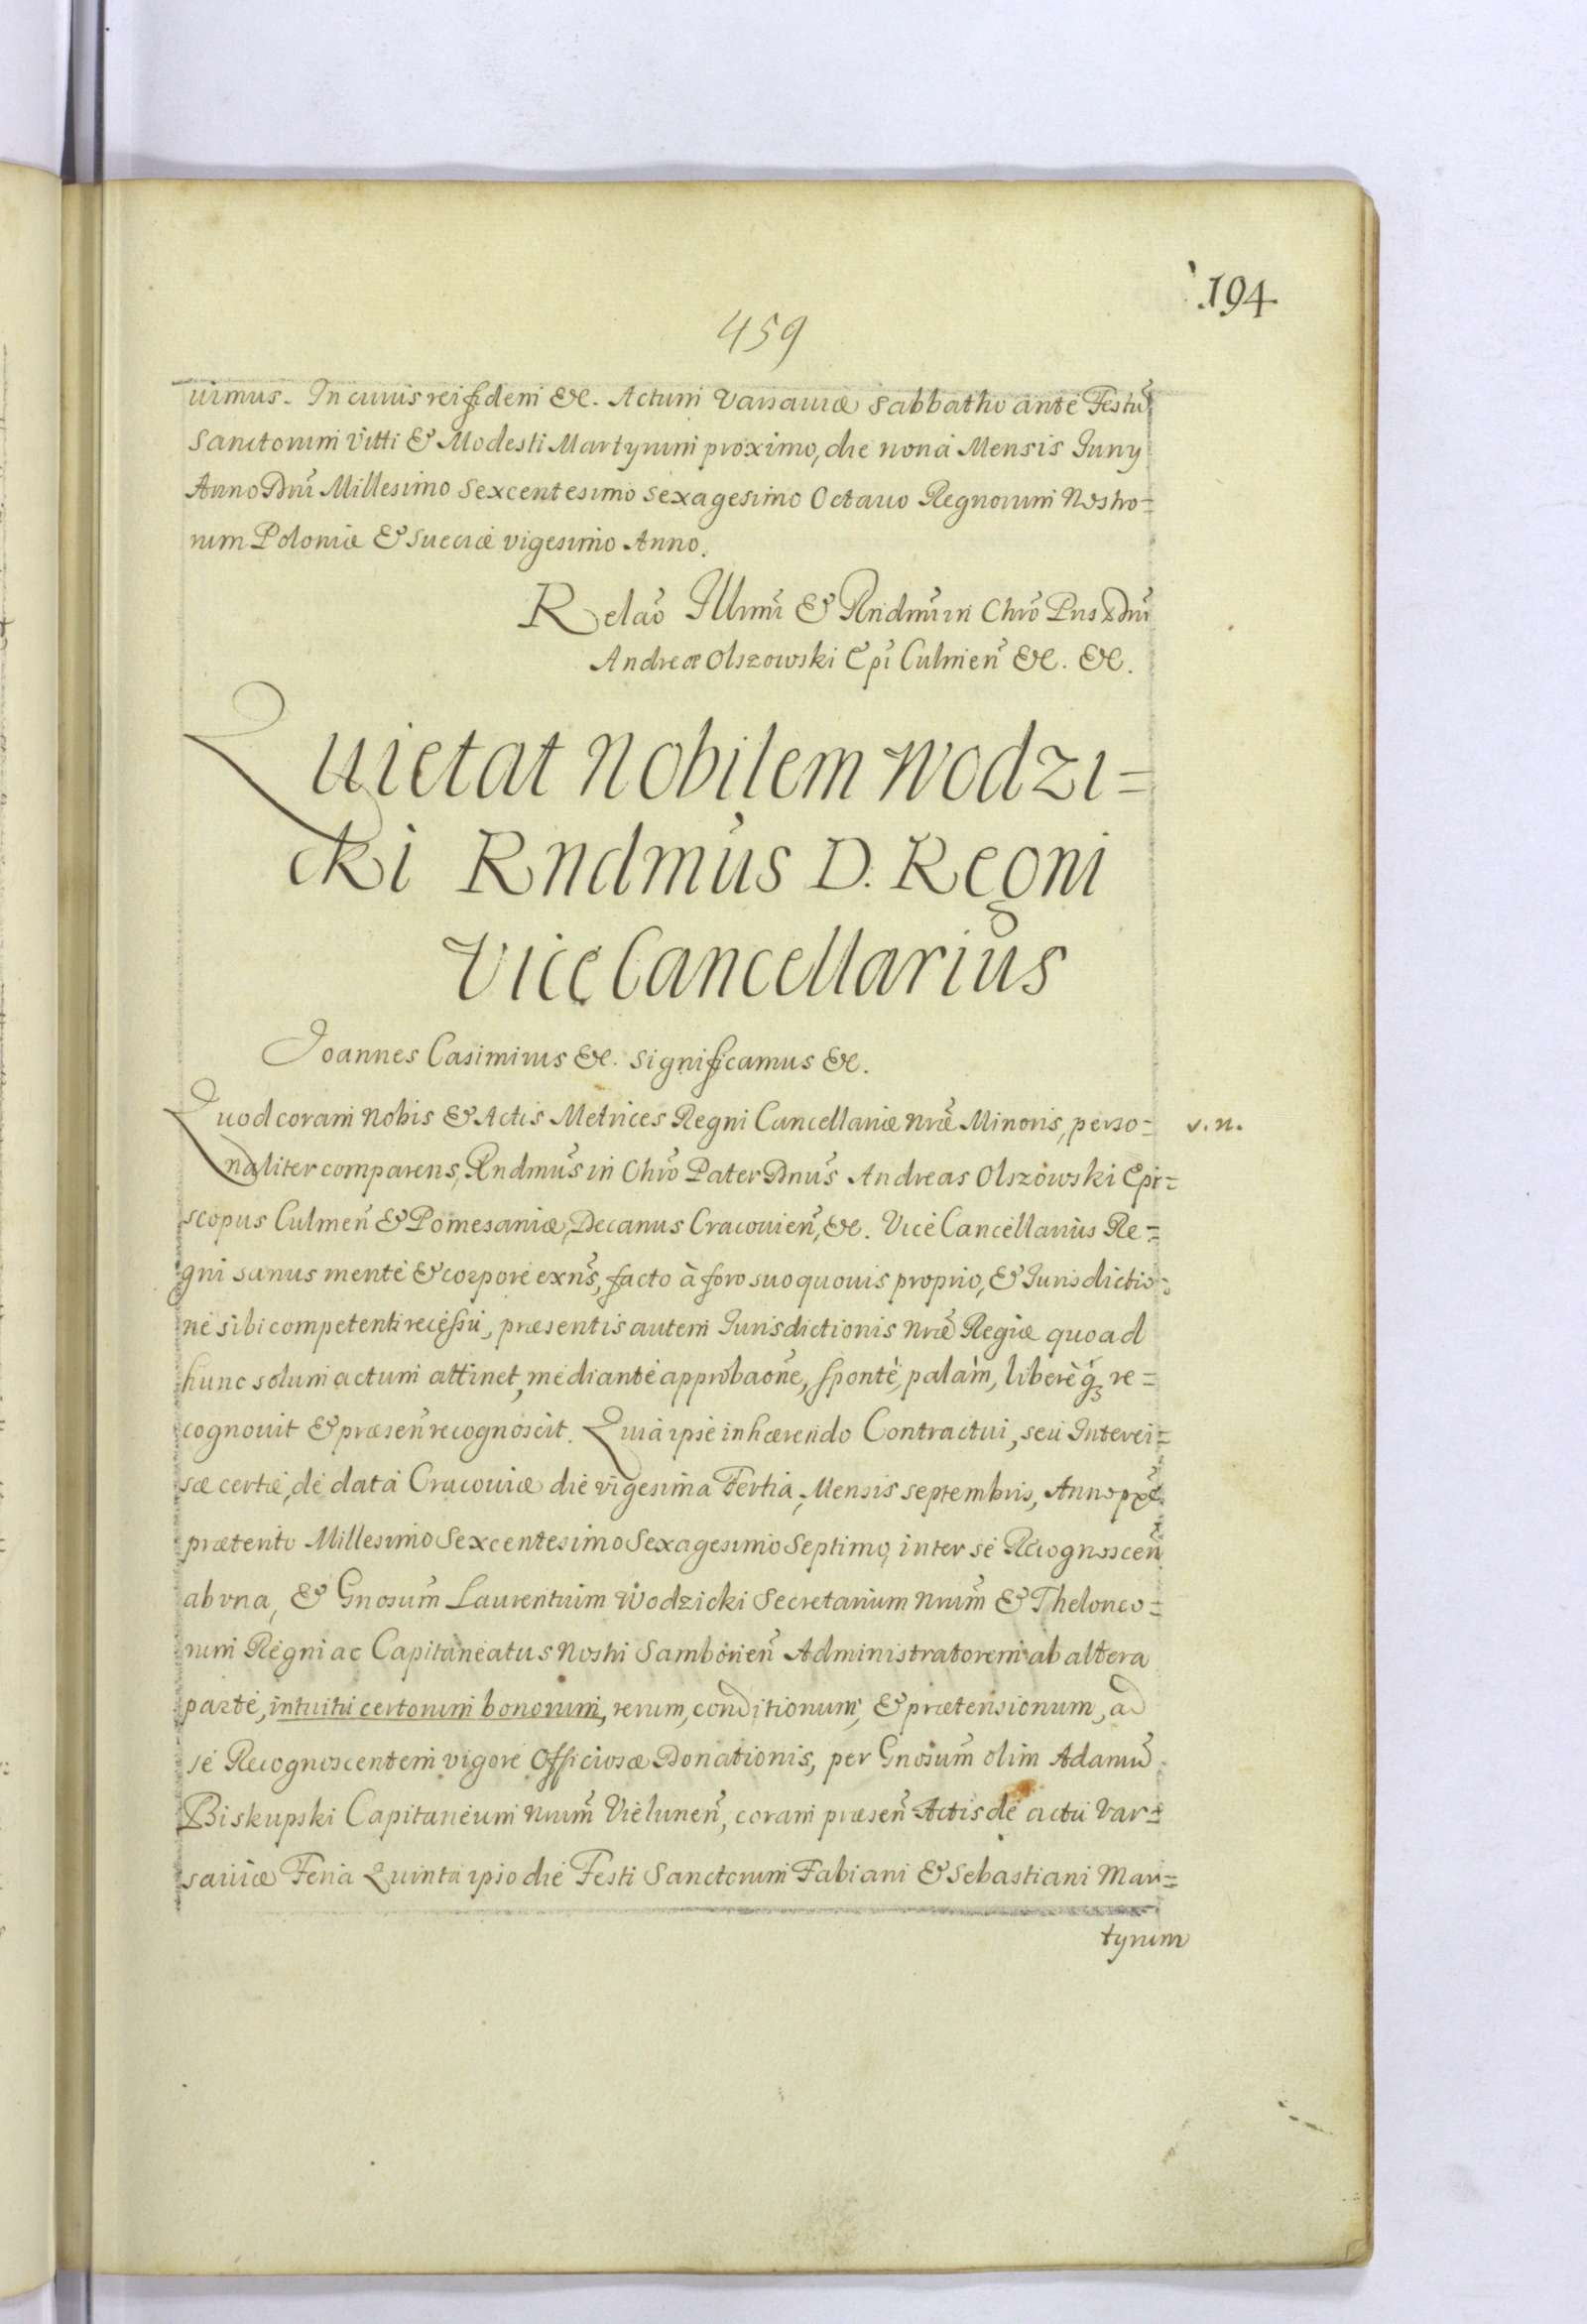 194
459
uimus. In cuius rei fidem &c. Actum Varsauiæ Sabbatho ante Festũ
Sanctorum Vitti & Modesti Martyrum proximo, die nona Mensis Juny
Anno Dni Millesimo Sexcentesimo Sexagesimo Octauo Regnorum Nostro=
rum Poloniæ & Sueciæ vigesimo Anno.
Relaõ Illmi & Rndmi in Chrõ Pris Dni
Andreæ Olszowski Epi Culmeñ &c. &c.
Quietat Nobilem Wodzi=
cki Rndmus D. Regni
Vice Cancellarius
Joannes Casimirus &c. Significamus &c.
Quod coram Nobis & Actis Metrices Regni Cancellariæ Nræ Minoris, perso=
v. n.
naliter comparens, Rndmus in Chrõ Pater Dnus Andreas Olszowski Epi=
scopus Culmeñ & Pomesaniæ, Decanus Cracouieñ, &c. Vice Cancellarius Re=
gni sanus mente & corpore exns, facto à foro suo quouis proprio, & Jurisdictio=
ne sibi competenti recessu, præsentis autem Jurisdictionis Nræ Regiæ quoad
hunc solum actum attinet, mediante approbaone, sponte, palam, libereq́ꝫ re=
cognouit & præseñ recognoscit. Quia ipse inhærendo Contractui, seu Interci=
sæ certæ, de data Cracouiæ die vigesima Tertia, Mensis Septembris, Anno pxe
præterito Millesimo Sexcentesimo Sexagesimo Septimo, inter se Recognosceñ
ab vna, & Gnosum Laurentium Wodzicki Secretarium Nrum & Theloneo=
rum Regni ac Capitaneatus Nostri Samborieñ Administratorem ab altera
parte, intuitu certorum bonorum, rerum, conditionum, & prætensionum, ad
se Recognoscentem vigore Officiosæ Donationis, per Gnosum olim Adamũ
Biskupski Capitaneum Nrum Vieluneñ, coram præseñ Actis de actu Var=
sauiæ Feria Quinta ipso die Festi Sanctorum Fabiani & Sebastiani Mar=
tyrum